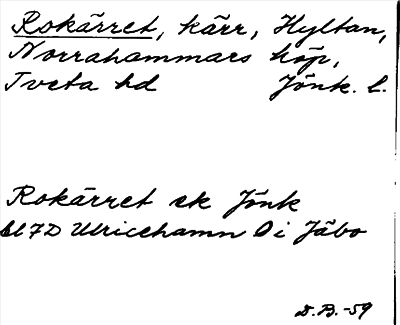 Rokärret, kärr, Hyltan,
Norrahammars köp,
Tveta hd Jönk. l.
Rokärret ek Jönk
bl 7D Ulricehamn O i Jäbo
D.B. -59